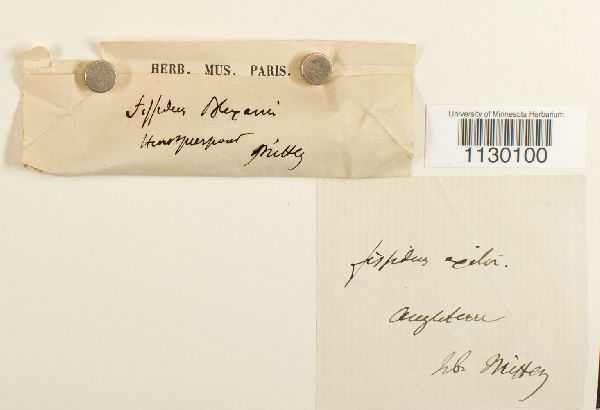 HERB. MUS. PARIS.
Fissidens Bloxami
Hurstpierpoint
Mitten
University of Minnesota Herbarium
1130100
fissidens exilis.
Angleterre
hb. Mitten